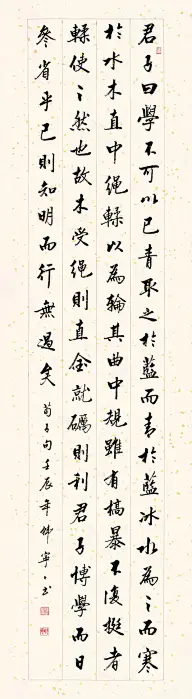 君子曰學不可以已青取之於藍而青於藍冰水為之而寒
於水木直中繩輮以為輪其曲中規雖有槁暴不復挺者
輮使之然也故木受繩則直金就礪則利君子博學而日
參省乎己則知明而行無過矣 荀子句壬辰年寧書